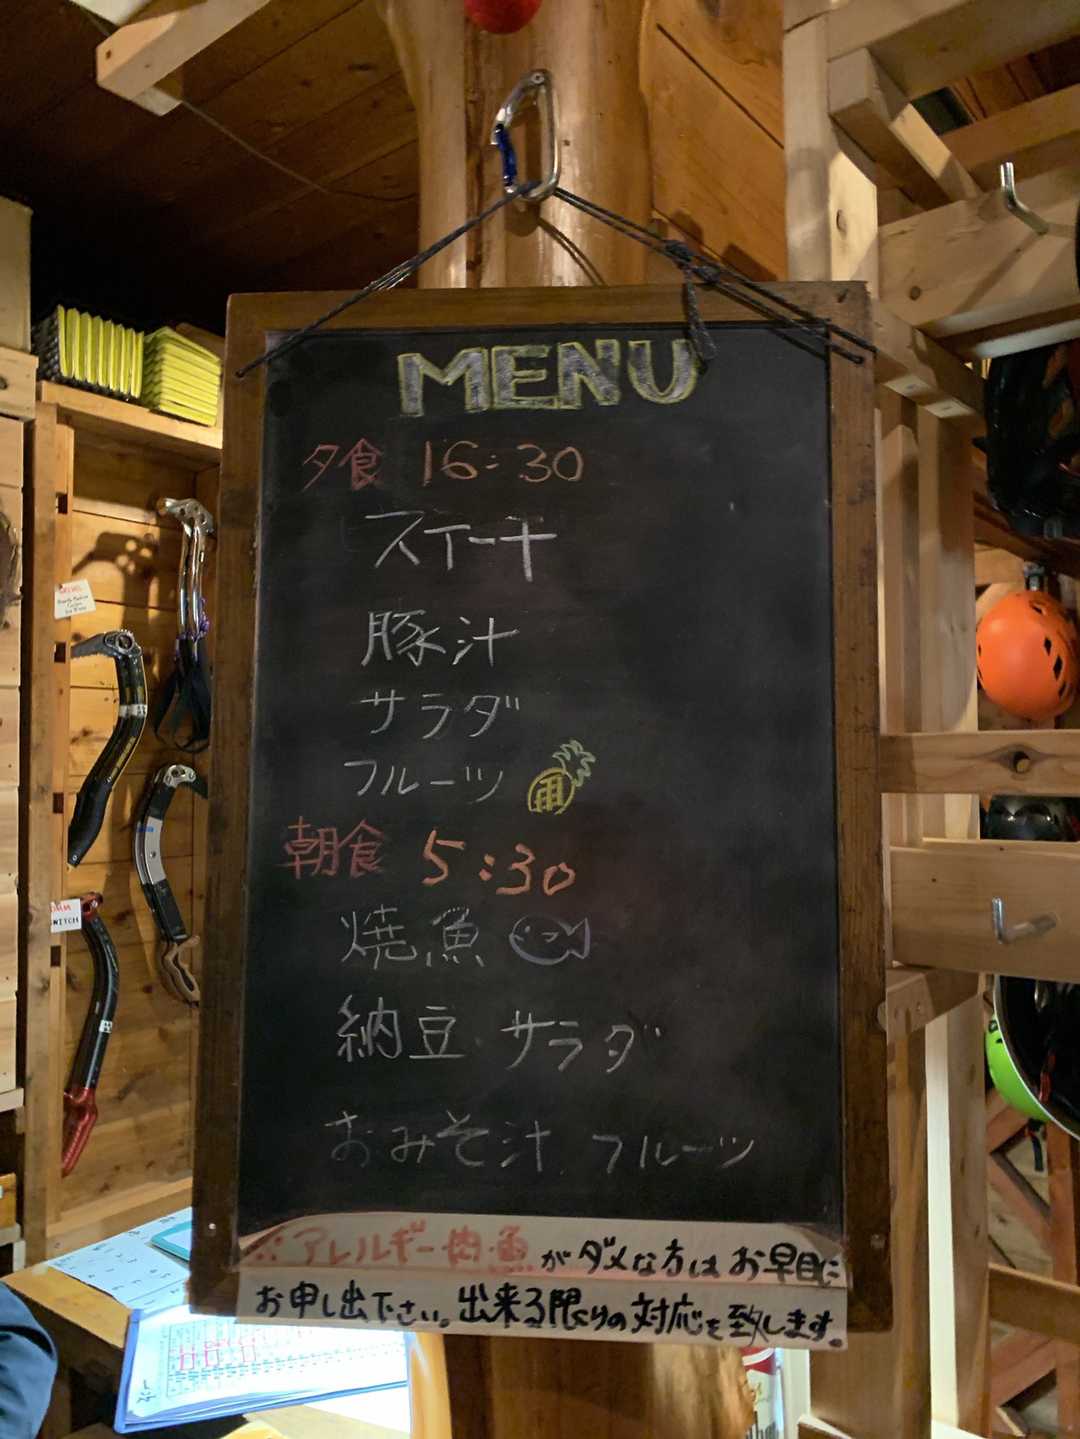 MENU
夕食 16:30
ステーキ
豚汁
サラダ
フルーツ
朝食 5:30
焼魚
納豆 サラダ
おみそ汁 フルーツ
※アレルギー肉・魚がダメな方はお早目に
お申し出下さい。出来る限りの対応を致します。